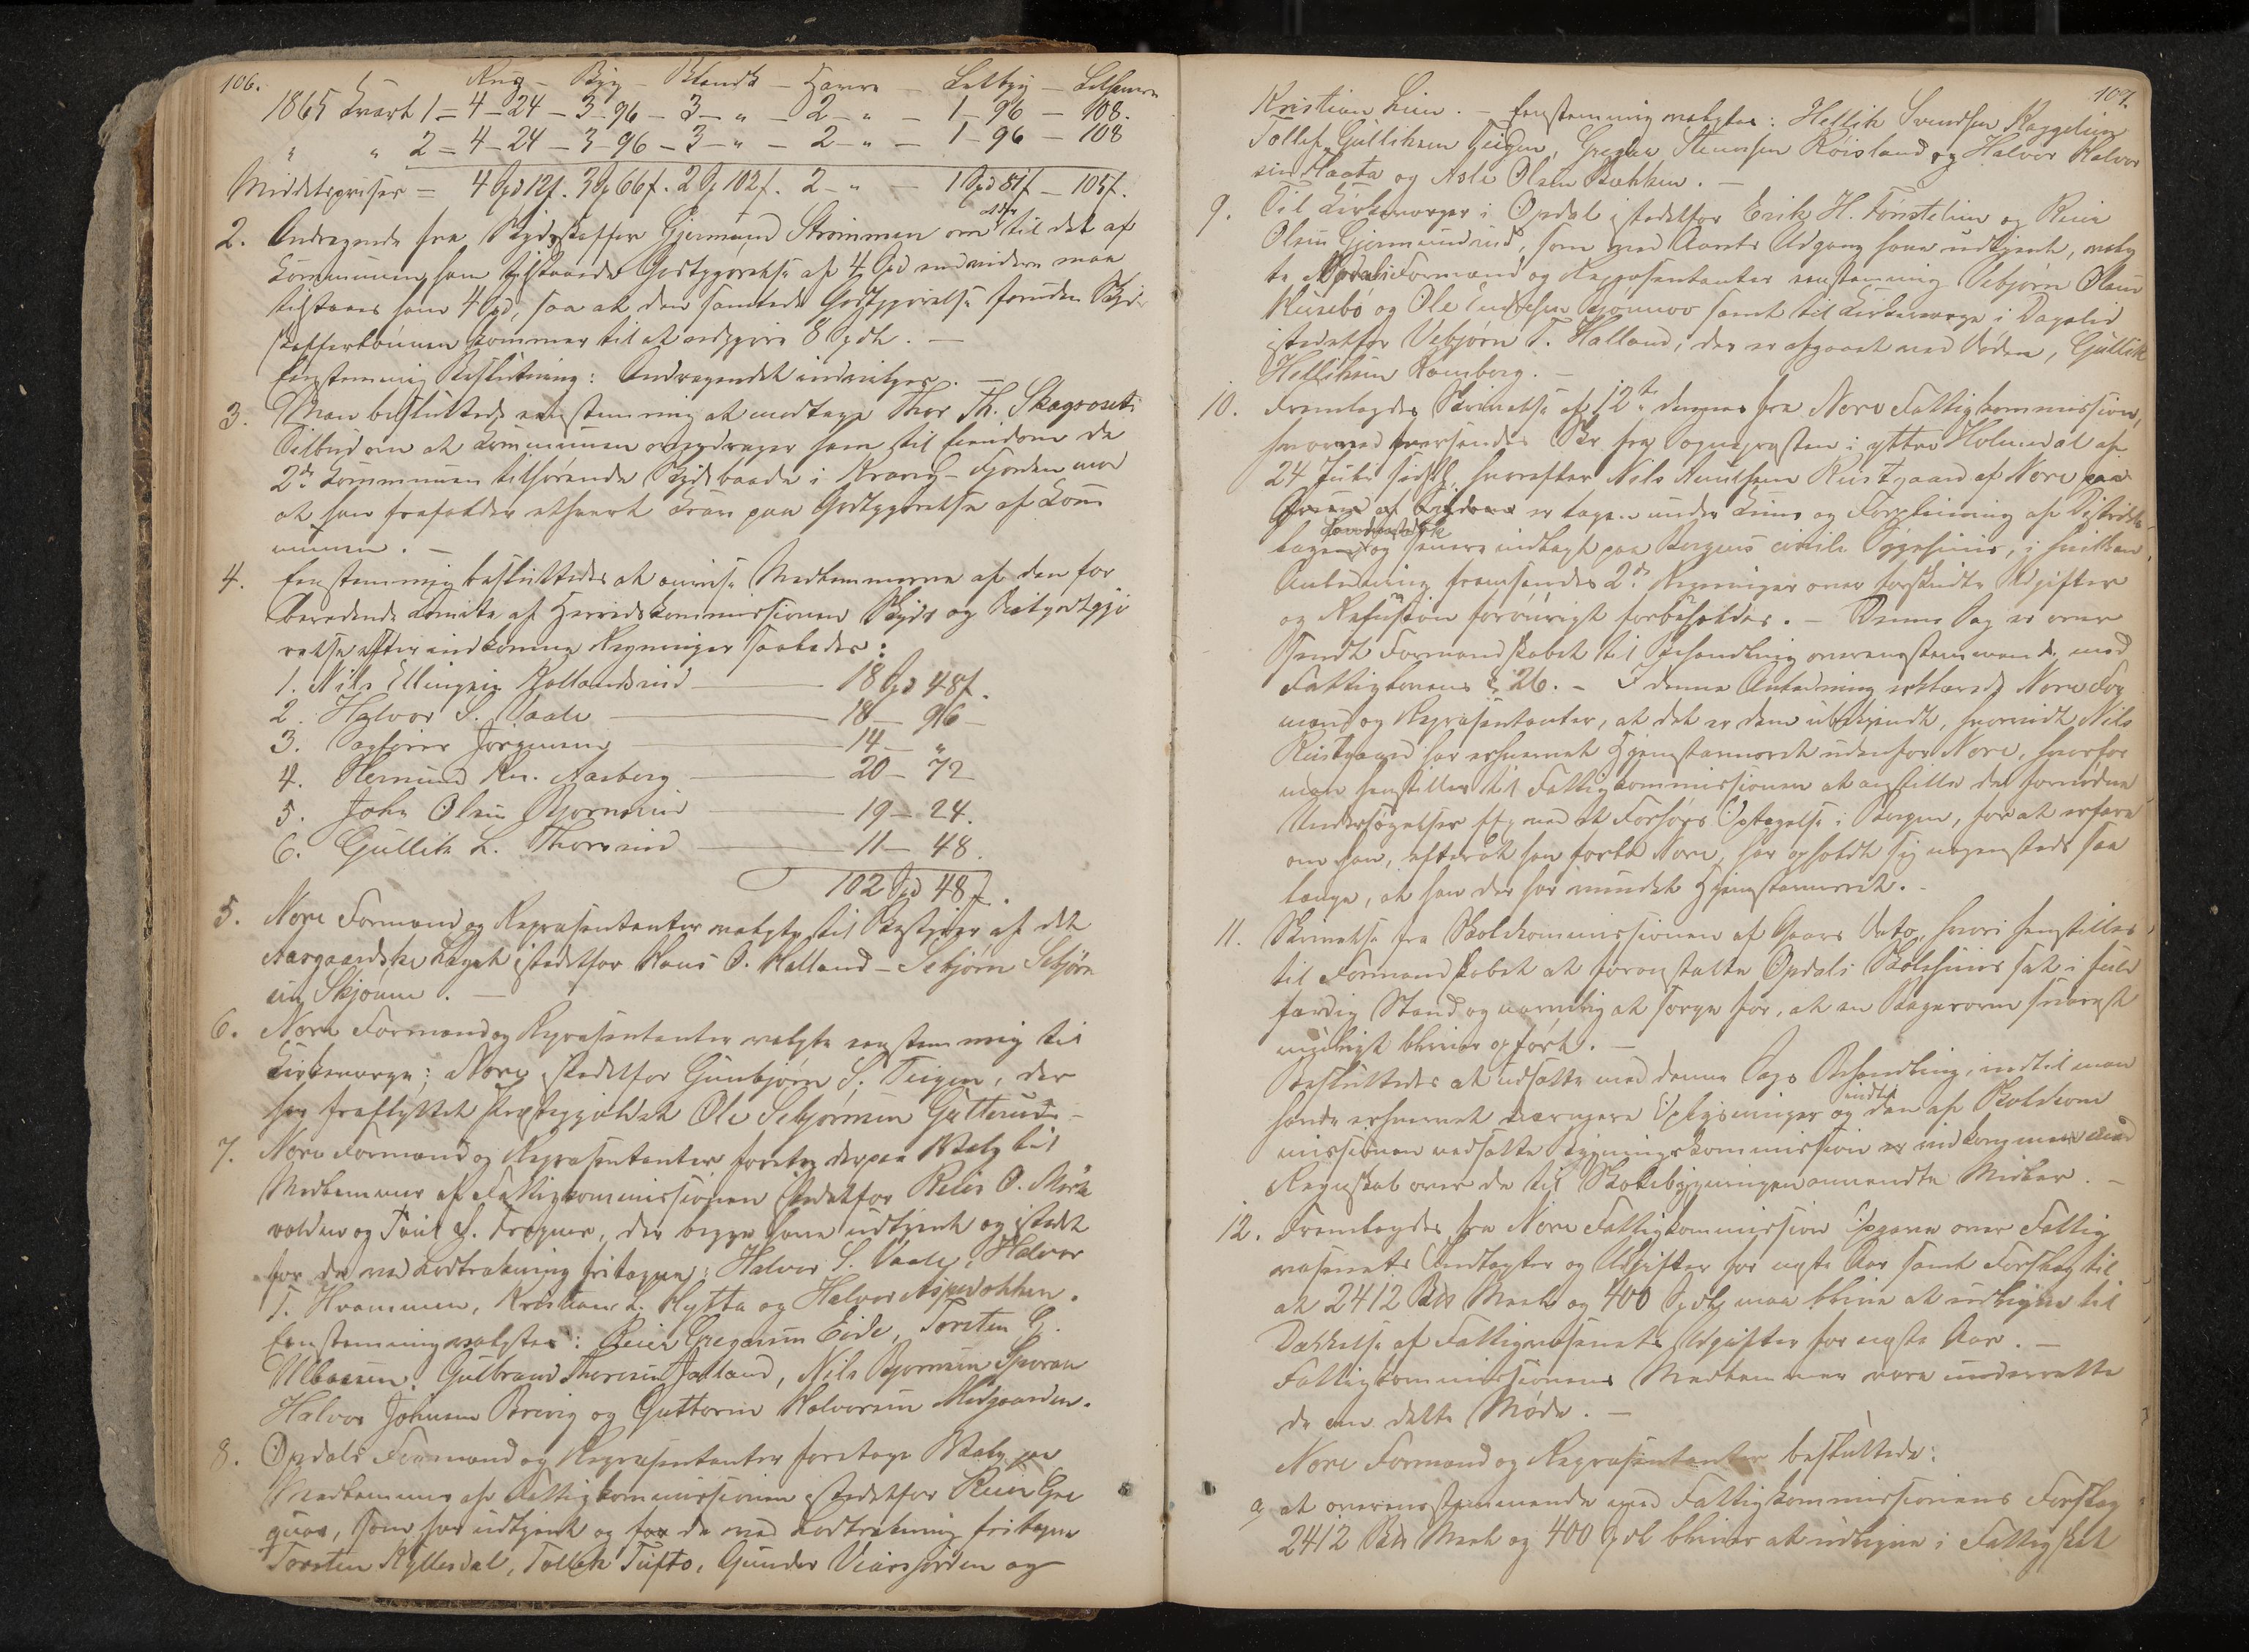 106.
Rug - Byg - Blandk - Havre - Letbyg - Lethavre
1865 Kvart 1 = 4 - 24 - 3 - 96 - 3 - " - 2 - " - 1 - 96 - 108.
" " 2 = 4 - 24 - 3 - 96 - 3 - " - 2 - " - 1 - 96 - 108
Middelpriser = 4 Spd 12 f. 3 Sp 66 f. 2 Sp 102 f. 2 - " - 1 Spd 81 f - 105 f.
2. Andragende fra Skydsskaffer Gjermund Strømmen om at der til det af
Kommunen ham tilstaaede Godtgjørelse af 4 Spd endvidere maa
tilstaaes ham 4 Spd, saa at den samlede Godtgjørelse foruden Skyds
skafferlønnen kommer til at udgjøre 8 Spdlr. -
Eenstemmig Beslutning: Andragendet indvilges. -
3. Man besluttede eenstemmig at modtage Thor Th. Skagsoset's
Tilbud om at Kommunen overdrager ham til Eiendom de
2de Kommunen tilhørende Skydsbaade i Kravig-Fjorden mod
at han frafalder ethvert Krav paa Godtgjørelse af Kom
munen. -
4. Eenstemmig besluttedes at anvise Medlemmerne af den for
beredende Komite af Herredskommissionen Skyds og Diætgodtgjø
relse efter indkomne Regninger saaledes:
1. Nils Ellingsen Hallandsrud 18 Spd 48 f.
2. Halvor S. Vaale 18 - 96 -
3. Sagfører Jørgensen 14 - "
4. Hermund Kn. Aasberg 20 - 72
5. John Olsen Bjørnsrud 19 - 24.
6. Gullik L. Thorsrud 11 - 48.
102 Spd 48 f.
5. Nore Formænd og Repræsentanter valgte til Bestyrer af det
Aargaardske Legat istedetfor Hans O. Halland - Sebjørn Sebjørn
sen Skjønne. -
6. Nore Formænd og Repræsentanter valgte eenstemmig til
Kirkeværge i Nore istedetfor Gunbjørn S. Teigen, der
har fraflyttet Præstegjeldet Ole Sebjørnsen Gutterud. -
7. Nore Formænd og Repræsentanter foretog derpaa Valg til
Medlemmer af Fattigkommissionen istedetfor Reier O. Mørk
volden og Paul G. Frogner, der begge have udtjent og istedet
for de ved Lodtrækning fritagne: Halvor S. Vaale, Halvor
T. Hvammen, Kristian L. Hytta og Halvor Aspeslokken.
Eenstemmig valgtes: Reier Gregarsen Eide, Torsten G.
Ulbaasen, Gulbrand Thoresen Jalland, Nils Bjørnsen Sporan
Halvor Johnsen Brevig og Guttorm Halvorsen Medgaarden.
8. Opdals Formænd og Repræsentanter foretoge Valg paa
Medlemmer af Fattigkommissionen istedetfor Reier Gre
gaas, som har udtjent og for de ved Lodtrækning fritagne
Torsten Hyllesdal, Tollek Tufto, Gunder Viersjorden og
107.
Kristian Lien. - Eenstemmig valgtes: Hellik Svendsen Kaggelien
Tollef Gulliksen Teigen, Gregar Steensen Roisland og Halvor Halvor
sen Haata og Asle Olsen Bakken. -
9. Til Kirkeværger i Opdal istedetfor Erik H. Tonstelien og Reier
Olsen Gjermundrud, som ved Aarets Udgang have udtjent, valg
te Opdals Formænd og Repræsentanter eenstemmig Vebjørn Olsen
Husebø og Ole Endresen Gjønnos samt til Kirkeværge i Dagalid
istedetfor Vebjørn T. Halland, der er afgaaet ved Døden, Gullik
Helliksen Ramberg. -
10. Fremlagdes Skrivelse af 12te dennes fra Nore Fattigkommission,
hvorved oversendes Skr fra Sognepræsten i yttre Holmedal af
24 Juli sidstl, hvorefter Nils Knutsen Rustgaard af Nore paa
Grund af Sygdom er tagen under Kuur og Forpleining af Distrikts
lægen Landmark og senere indlagt paa Bergens civile Sygehuus, i hvilken
Anledning fremsendes 2de Regninger over forskudte Udgifter
og Refusion forøvrigt forbeholdes. - Denne Sag er over
sendt Formandskabet til Behandling overensstemmende med
Fattiglovens § 26. - I denne Anledning erklærede Nore For
mænd og Repræsentanter, at det er dem ubekjendt, hvorvidt Nils
Rustgaard har erhvervet Hjemstavnsret udenfor Nore, hvorfor
man henstiller til Fattigkommissionen at anstille de fornødne
Undersøgelser f. Ex. ved et Forhørs Optagelse i Bergen, for at erfare
om han, efterat han forlod Nore, har opholdt sig nogensteds saa
længe, at han der har vundet Hjemstavnsret. -
11. Skrivelse fra Skolekommissionen af Gaars Dato, hvori henstilles
til Formandskabet at foranstalte Opdals Skolehuus sat i fuld
færdig Stand og navnlig at sørge for, at en Bagerovn snarest
muligt bliver opført. -
Besluttedes at udsætte med denne Sags Behandling, indtil man
havde erhvervet nærmere Oplysninger og indtil den af Skolekom
missionen nedsatte Bygningskommission er indkommen med
Regnskab over de til Skolebygningen anvendte Midler. -
12. Fremlagdes fra Nore Fattigkommission Opgave over Fattig
væsenets Indtægter og Udgifter for næste Aar samt Forslag til
at 2412 Rdr Mark og 400 Spdlr maa blive at udligne til
Dækkelse af Fattigvæsenets Udgifter for næste Aar. -
Fattigkommissionens Medlemmer vare underrette
de om dette Møde. -
Nore Formænd og Repræsentanter besluttede:
a, at overensstemmende med Fattigkommissionens Forslag
2412 Mark og 400 Spdlr bliver at udligne i Fattigskat